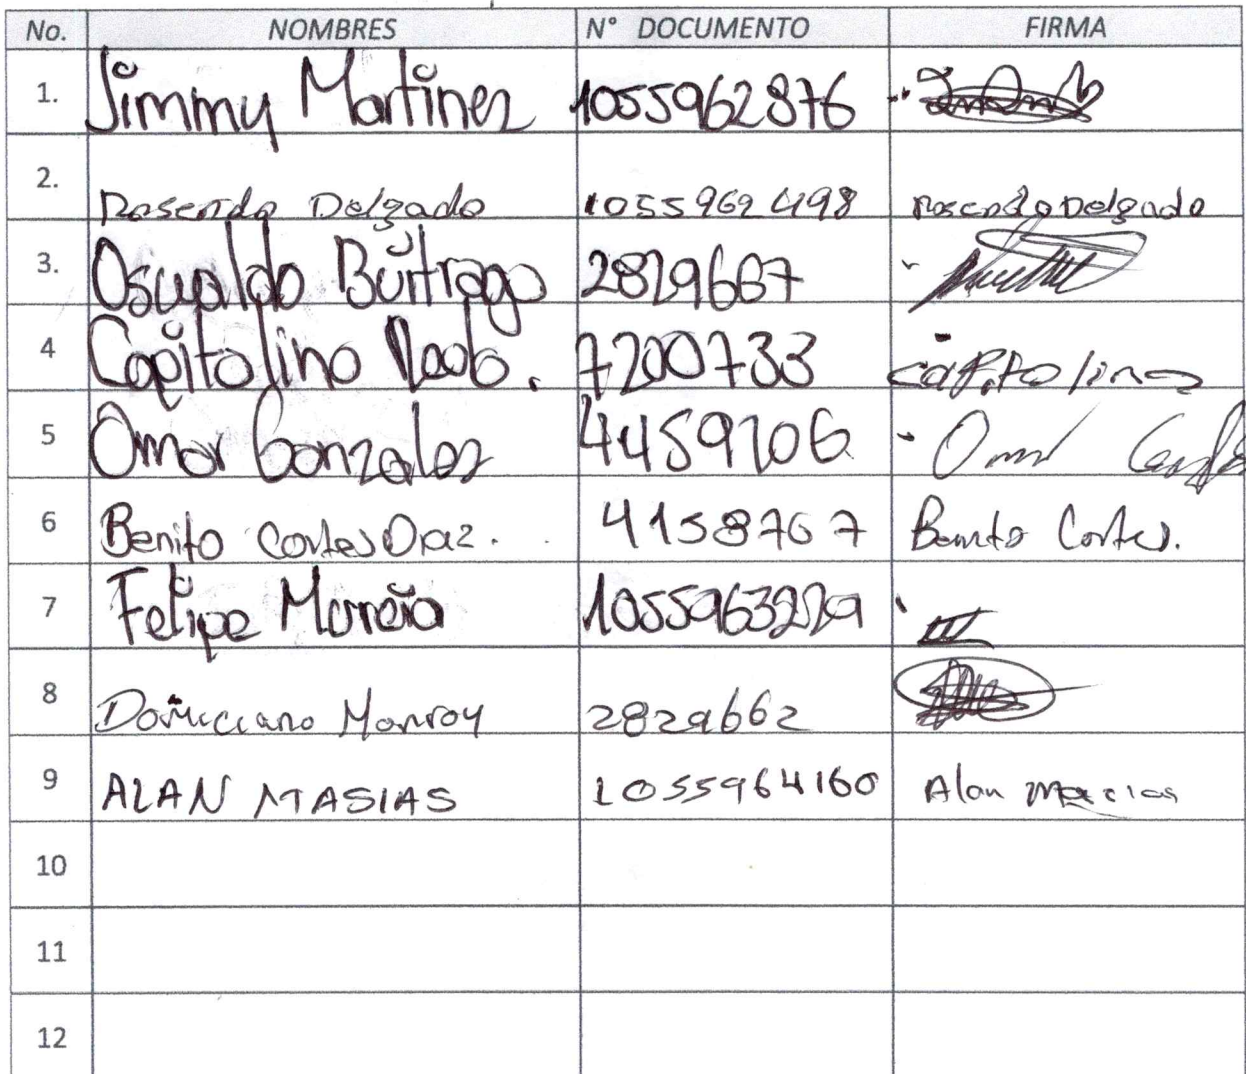 No. NOMBRES N° DOCUMENTO FIRMA
1. Jimmy Martinez 1055962876
2. Rosendo Delgado 1055962498 Rosendo Delgado
3. Osvaldo Buitrago 2829667
4 Capitolino 7200733 Capitolino
5 Omar Gonzalez 4459706 Omar
6 Benito Cortes Diaz. 4158767 Benito Cortes.
7 Felipe 1055963229
8 Domiciano Monroy 2829662
9 ALAN MASIAS 1055964160 Alan Macias
10
11
12